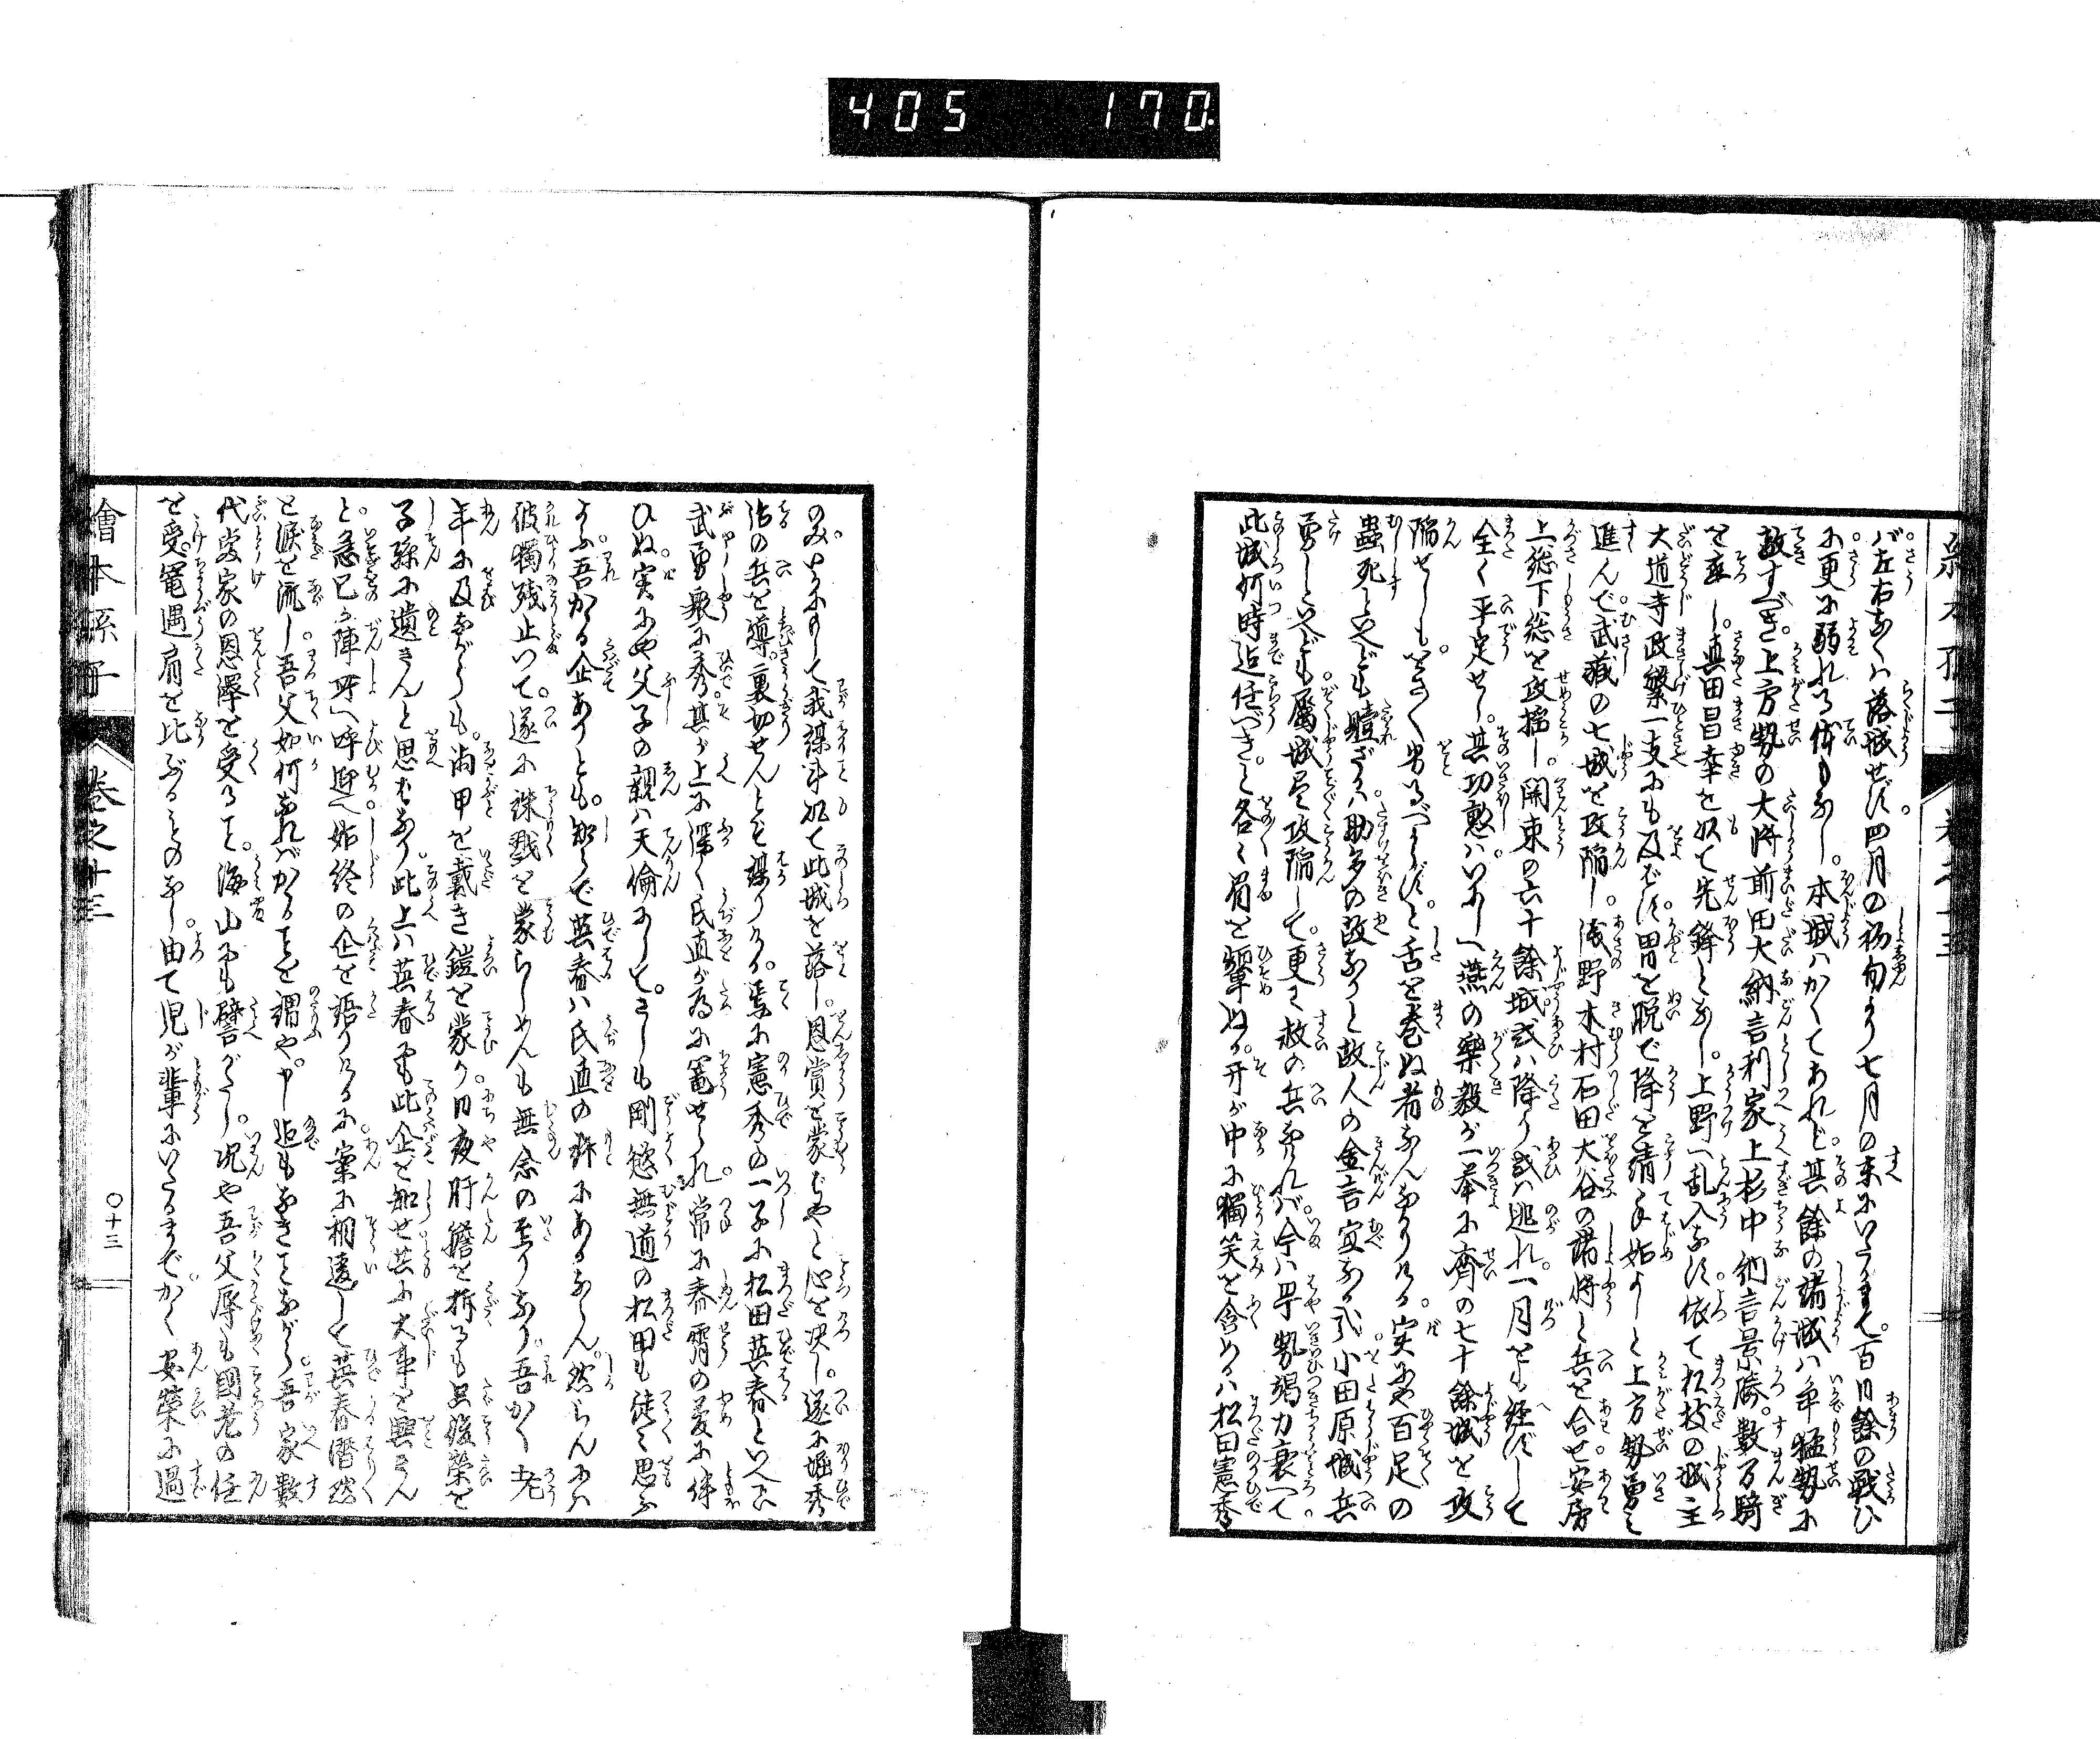 405 170
バ左右なくハ落城せず。四月の初旬より七月の末にいたるまで。百日餘の戦ひ
に更に弱れる体もなし。本城ハかくてあれど。其餘の諸城ハ争猛勢に
敵すべき。上方勢の大将前田大納言利家上杉中納言景勝。数万騎
を率し。真田昌幸を以て先鋒となし。上野へ乱入なす。依て松枝の城主
大道寺政繁一支にも及ばず。冑を脱で降を請ひ始よしと上方勢勇に
進んで。武蔵の七城を攻陥し。浅野木村石田大谷の諸将と兵を合せ。安房
上総下総を攻搦し。関東の六十餘城或ハ降り或ハ逃れ。一月をも経ずして
全く平定せり。其功勲ハいにしへ燕の楽毅が一挙に齊の七十餘城を攻
陥せしも。をさ〱劣るべからず。と舌を巻ぬ者なんなかりける。実にや百足の
蟲死といへども殪ざるハ助多の故なりと故人の金言宜なる哉小田原城兵
勇しといへども。属城尽攻陥して。更に救の兵なけれバ。今ハ早勢竭力衰へて
此城何時迄任べき。と各〱眉を顰ぬる。于が中に獨笑を含めるハ松田憲秀
のみ。いかにもして我謀計以て此城を落し。恩賞を蒙むらばやと心を決し。遂に堀秀
治の兵を導。裏切せんとぞ謀りける。焉に憲秀の一子に松田英春といへるハ
武勇衆に秀。其が上に深く氏直が為に寵せられ。常に春宵の蔓に伴
ひぬ。実にや父子の親ハ天倫にして。さしも剛慾無道の松田も徒く思ふ
よふ吾かゝる企ありとも。知らで英春ハ氏直の許にあるならん。然らんにハ
彼獨残止つて。遂に誅戮を蒙らしめんも無念の至りなり。吾かく老
年に及ながらも。尚甲を戴き鎧を蒙り。日夜肝膽を摧るも畢後榮を
子孫に遺さんと思むなり。此上ハ英春にも此企を知せ共に大事を興さん
と。急己が陣所へ呼迎へ始終の企を語りけるに。案に相違して英春潸然
と涙を流し。吾父如何なれバかゝることを謂や。申し迄もなきことながら。吾家数
代當家の恩澤を受ること。海山にも譬がたし。况や吾父辱も國老の任
を受。寵遇肩を比ぶることのなし。由て児が輩にいたるまで。かく安榮に過
繪本孫子 巻之十三 〇十三